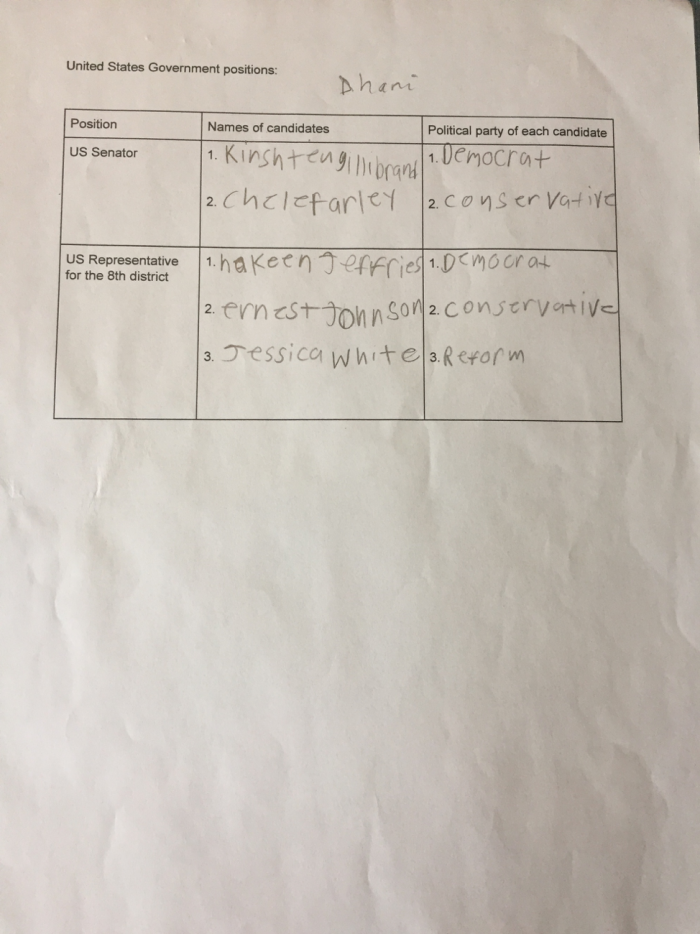 United States Government positions:
Dhani
Position Names of candidates Political party of each candidate
US Senator 1. Kinshtengillibrand 1. Democrat
2. Chelefarley 2. conservative
US Representative 1. hakeen Jeffries 1. Democrat
for the 8th district
2. ernest Johnson 2. conservative
3. Jessica White 3. Reform